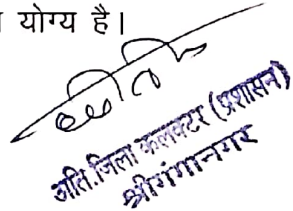 योग्य है।
अति.जिला कलक्टर (प्रशासन)
श्रीगंगानगर